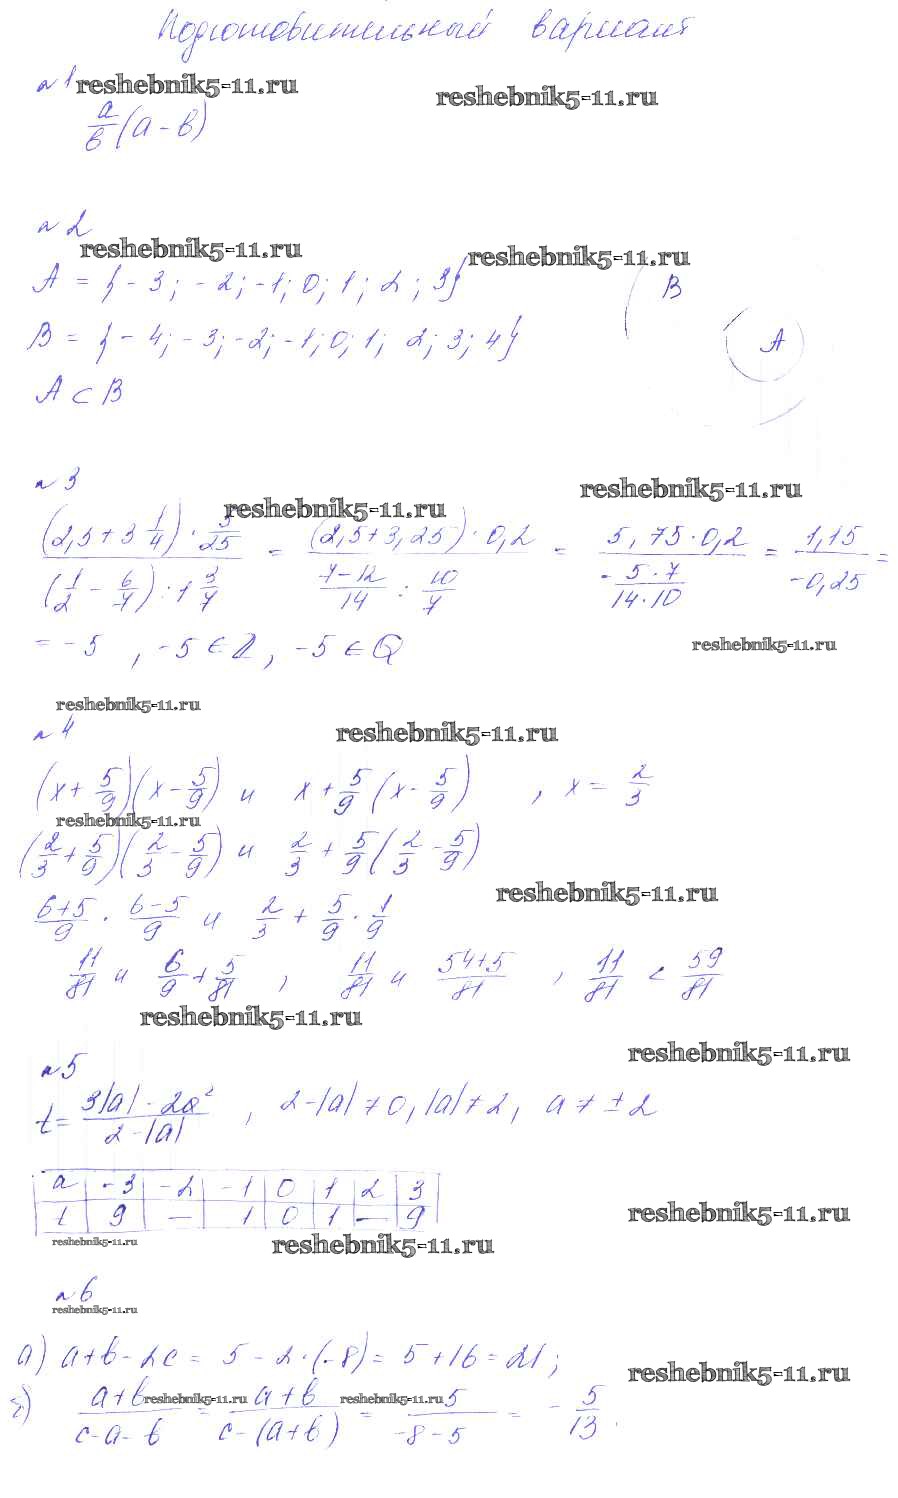 Подготовительный вариант
№1 reshebnik5-11.ru
reshebnik5-11.ru
a/b (a - b)
№2
reshebnik5-11.ru reshebnik5-11.ru
A = {-3; -2; -1; 0; 1; 2; 3}
B
B = {-4; -3; -2; -1; 0; 1; 2; 3; 4}
A
A ⊂ B
№3
reshebnik5-11.ru reshebnik5-11.ru
((2,5 + 3 1/4) · 5/25) / ((1/2 - 6/7) : 1 3/7) = ((2,5 + 3,25) · 0,2) / ((7-12)/14 : 10/7) = (5,75 · 0,2) / (- (5·7)/(14·10)) = 1,15 / -0,25 =
= -5, -5 ∈ Z, -5 ∈ Q
reshebnik5-11.ru
reshebnik5-11.ru
№4 reshebnik5-11.ru
(x + 5/9)(x - 5/9) и x + 5/9 (x - 5/9), x = 2/3
reshebnik5-11.ru
(2/3 + 5/9)(2/3 - 5/9) и 2/3 + 5/9 (2/3 - 5/9)
reshebnik5-11.ru
(6+5)/9 · (6-5)/9 и 2/3 + 5/9 · 1/9
11/81 и 6/9 + 5/81, 11/81 и (54+5)/81, 11/81 < 59/81
reshebnik5-11.ru
reshebnik5-11.ru
№5
t = (3|a| - 2a²) / (2 - |a|), 2 - |a| ≠ 0, |a| ≠ 2, a ≠ ±2
a -3 -2 -1 0 1 2 3
t 9 — 1 0 1 — 9
reshebnik5-11.ru
reshebnik5-11.ru reshebnik5-11.ru
№6
reshebnik5-11.ru
а) a + b - 2c = 5 - 2 · (-8) = 5 + 16 = 21;
reshebnik5-11.ru
б) (a+b)/(c-a-b) = (a+b)/(c-(a+b)) = 5/(-8-5) = - 5/13.
reshebnik5-11.ru reshebnik5-11.ru